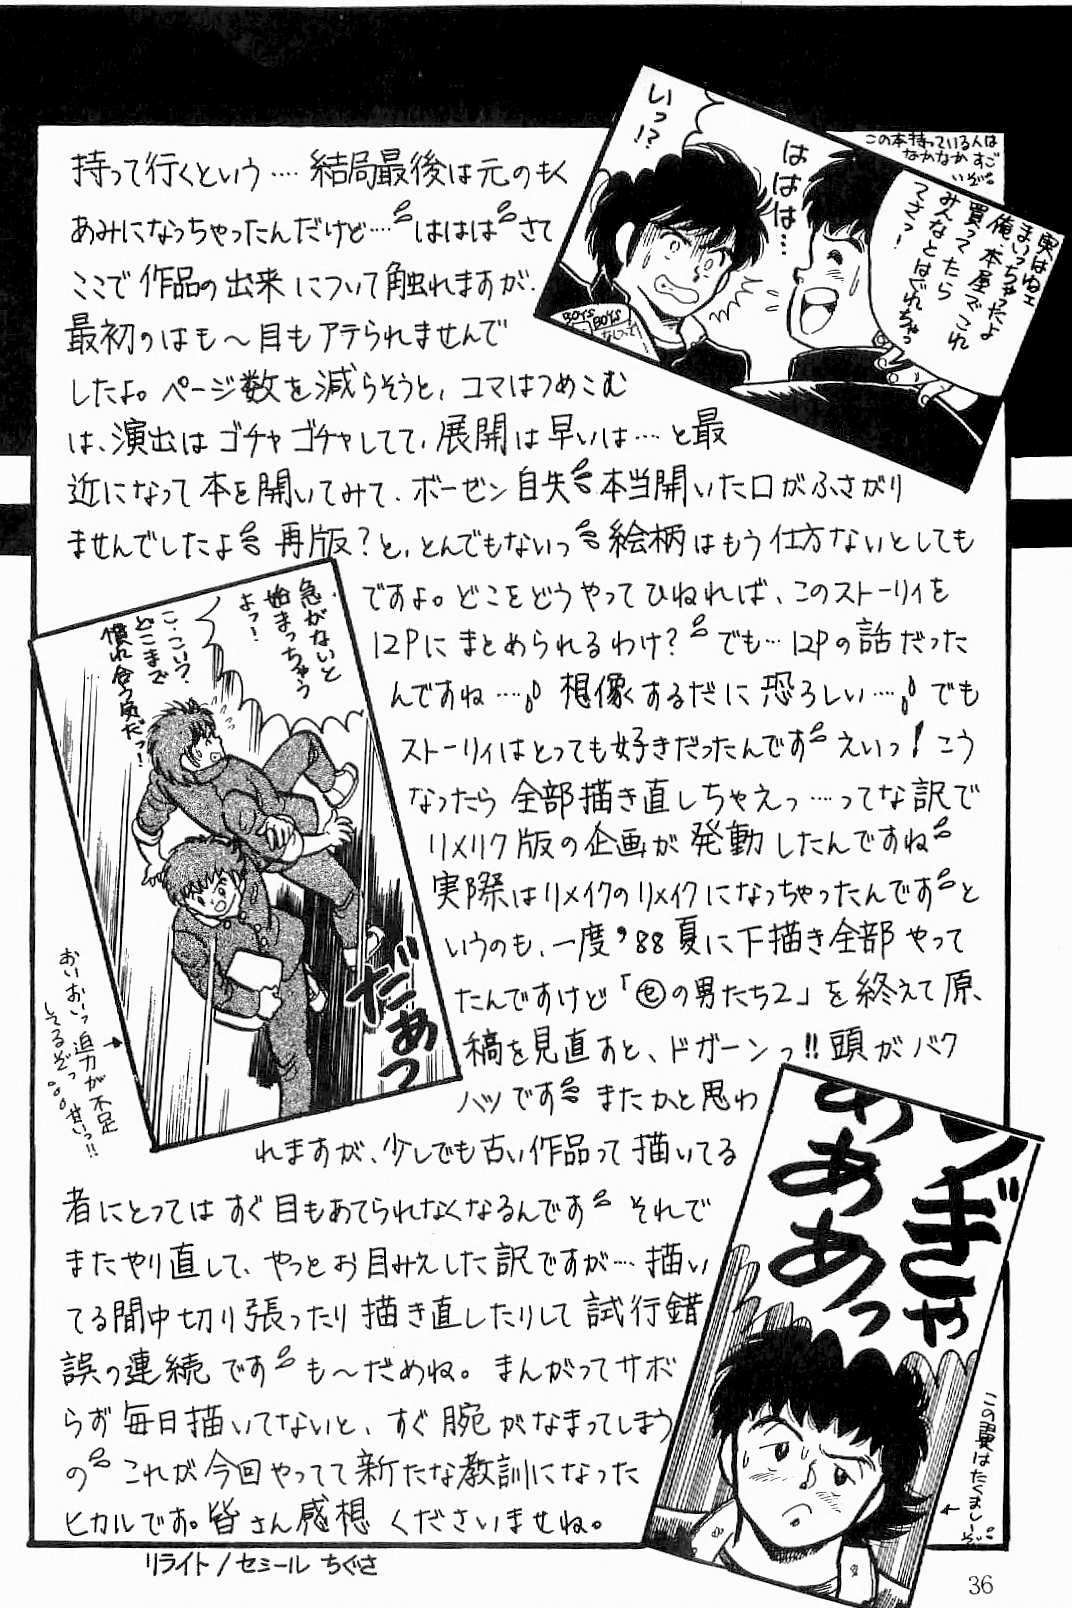 持って行くという‥‥結局最後は元のもく
あみになっちゃったんだけど‥‥ははは さて
ここで作品の出来について触れますが、
最初のはも〜目もアテられませんで
したよ。ページ数を減らそうと、コマはつめこむ
は、演出はゴチャゴチャしてて、展開は早いは…と最
近になって本を開いてみて、ボーゼン自失 本当開いた口がふさがり
ませんでしたよ 再版?と、とんでもないっ 絵柄はもう仕方ないとしても
ですよ。どこをどうやってひねれば、このストーリィを
12Pにまとめられるわけ? でも…12Pの話だった
んですね‥‥ 想像するだに恐ろしい‥‥ でも
ストーリィはとっても好きだったんです えいっ! こう
なったら全部描き直しちゃえっ‥‥ってな訳で
リメイク版の企画が発動したんですね
実際はリメイクのリメイクになっちゃったんです と
いうのも、一度'88夏に下描き全部やって
たんですけど「㊆の男たち2」を終えて原、
稿を見直すと、ドガーンっ!!頭がバク
ハツです またかと思わ
れますが、少しでも古い作品って描いてる
者にとってはすぐ目もあてられなくなるんです それで
またやり直して、やっとお目みえした訳ですが‥‥描い
てる間中切り張ったり描き直したりして試行錯
誤の連続です も〜だめね。まんがってサボ
らず毎日描いてないと、すぐ腕がなまってしまう
の これが今回やってて新たな教訓になった
ヒカルです。皆さん感想くださいませね。
リライト/セミール ちぐさ
この本持っている人は
なかなかすご
いぞ
実はねェ
まいっちゃったよ
俺、本屋でこれ
買ってたら
みんなとはぐれちゃっ
てさっ!
ははは…
いっ!?
BOYS
BOYS
急がないと
始まっちゃう
よっ!
こ・こいつ、
どこまで
慣れ合う気だっ!
だあっ
おいおいっ迫力が不足
してるぞっ 甘いっ!!
ンぎゃ
ああぁっ
この眉はたくましーぞ
36